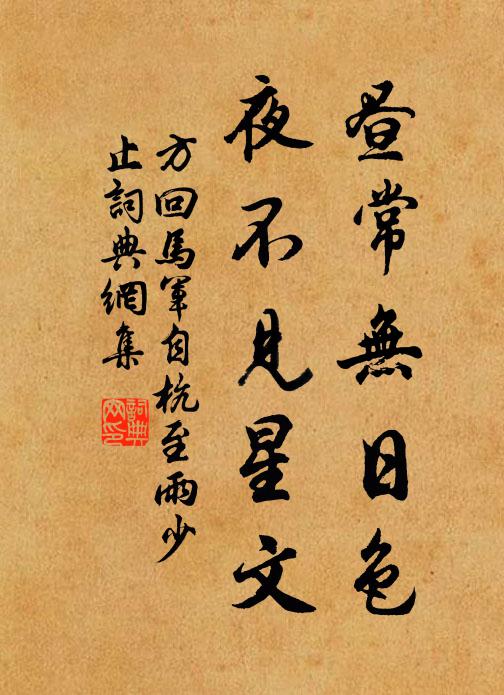 昼常無日色
夜不見星文
方回馬軍自杭至雨少
止詞典網集
詞典
网印